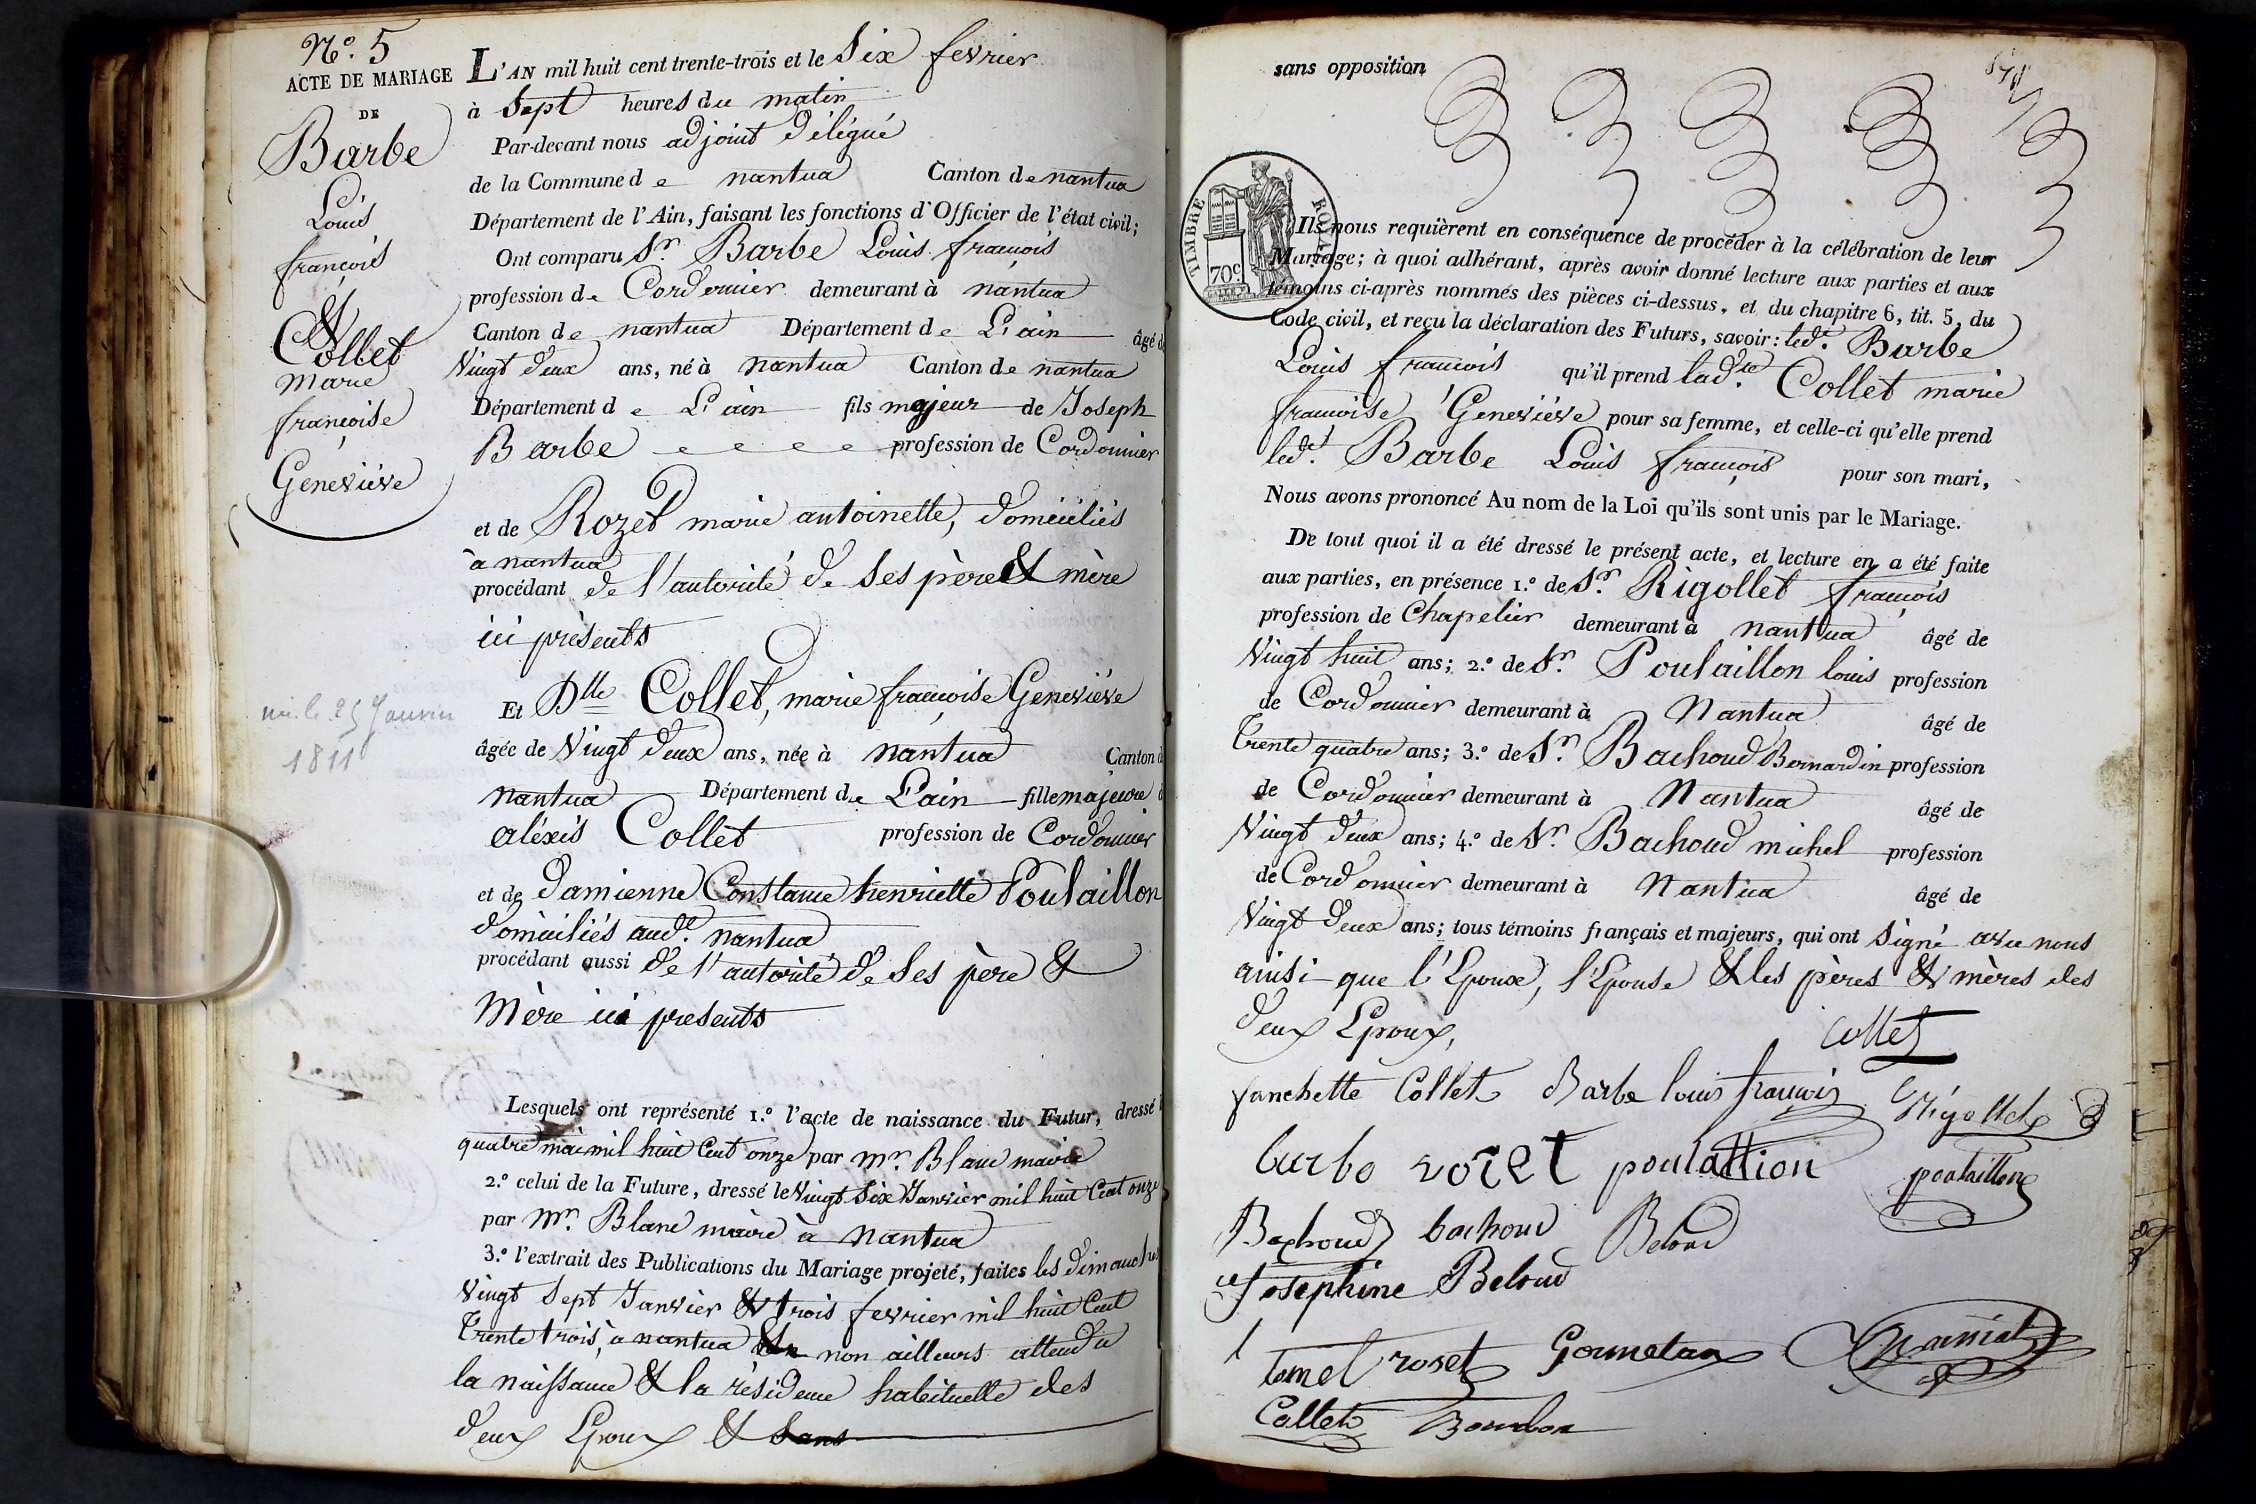 N.º 5
ACTE DE MARIAGE
DE
Barbe
Louis
françois
&
Collet
marie
françoise
Geneviève
1811
L'AN mil huit cent trente-trois et le Six fevrier
à Sept heures du matin
Par-devant nous adjoint délégué
de la Commune de nantua Canton de nantua
Département de l'Ain, faisant les fonctions d'Officier de l'état civil;
Ont comparu Sr. Barbe Louis françois
profession de Cordonnier demeurant à nantua
Canton de nantua Département de L'ain âgé de
Vingt deux ans, né à nantua Canton de nantua
Département de L'ain fils majeur de Joseph
Barbe profession de Cordonnier
et de Rozet marie antoinette, domiciliés
à nantua
procédant de l'autorité de Ses père & mère
ici présents
Et Dlle Collet, marie françoise Geneviève
âgée de Vingt deux ans, née à nantua Canton
nantua Département de L'ain fille majeure
aléxis Collet profession de Cordonnier
et de damienne Constance henriette Poulaillon
domiciliés aud.t nantua
procédant aussi de l'autorité de Ses père &
Mère ici presents
Lesquels ont représenté 1.º l'acte de naissance du Futur, dressé
quatre mai mil huit Cent onze par mr. Blanc maire
2.º celui de la Future, dressé le Vingt Six Janvier mil huit Cent onze
par Mr. Blanc maire à nantua
3.º l'extrait des Publications du Mariage projeté, faites les dimanches
Vingt Sept Janvier & trois fevrier mil huit Cent
Trente trois, à nantua & non ailleurs attendu
la naissance & la résidence habituelle des
deux Epoux & Sans
sans opposition
TIMBRE ROYAL
70c
Ils nous requièrent en conséquence de procéder à la célébration de leur
Mariage; à quoi adhérant, après avoir donné lecture aux parties et aux
témoins ci-après nommés des pièces ci-dessus, et du chapitre 6, tit. 5, du
Code civil, et reçu la déclaration des Futurs, savoir: led.t Barbe
Louis françois qu'il prend lad.te Collet marie
françoise Geneviève pour sa femme, et celle-ci qu'elle prend
led.t Barbe Louis françois pour son mari,
Nous avons prononcé Au nom de la Loi qu'ils sont unis par le Mariage.
De tout quoi il a été dressé le présent acte, et lecture en a été faite
aux parties, en présence 1.º de Sr. Rigollet françois
profession de Chapelier demeurant à nantua âgé de
Vingt huit ans; 2.º de Sr. Poulaillon louis profession
de Cordonnier demeurant à Nantua âgé de
Trente quatre ans; 3.º de Sr. Bachoud Bernardin profession
de Cordonnier demeurant à Nantua âgé de
Vingt deux ans; 4.º de Sr. Bachoud michel profession
de Cordonnier demeurant à Nantua âgé de
Vingt deux ans; tous témoins français et majeurs, qui ont Signé avec nous
ainsi que l'Epoux, l'Epouse & les pères & mères des
deux Epoux,
Collet
fanchette Collet Barbe louis françois Rigollet
barbe rozet poulallion poulaillon
Bachoud bachoud Beloud
Josephine Beloud
roset Gormetan
Collet Bourbon